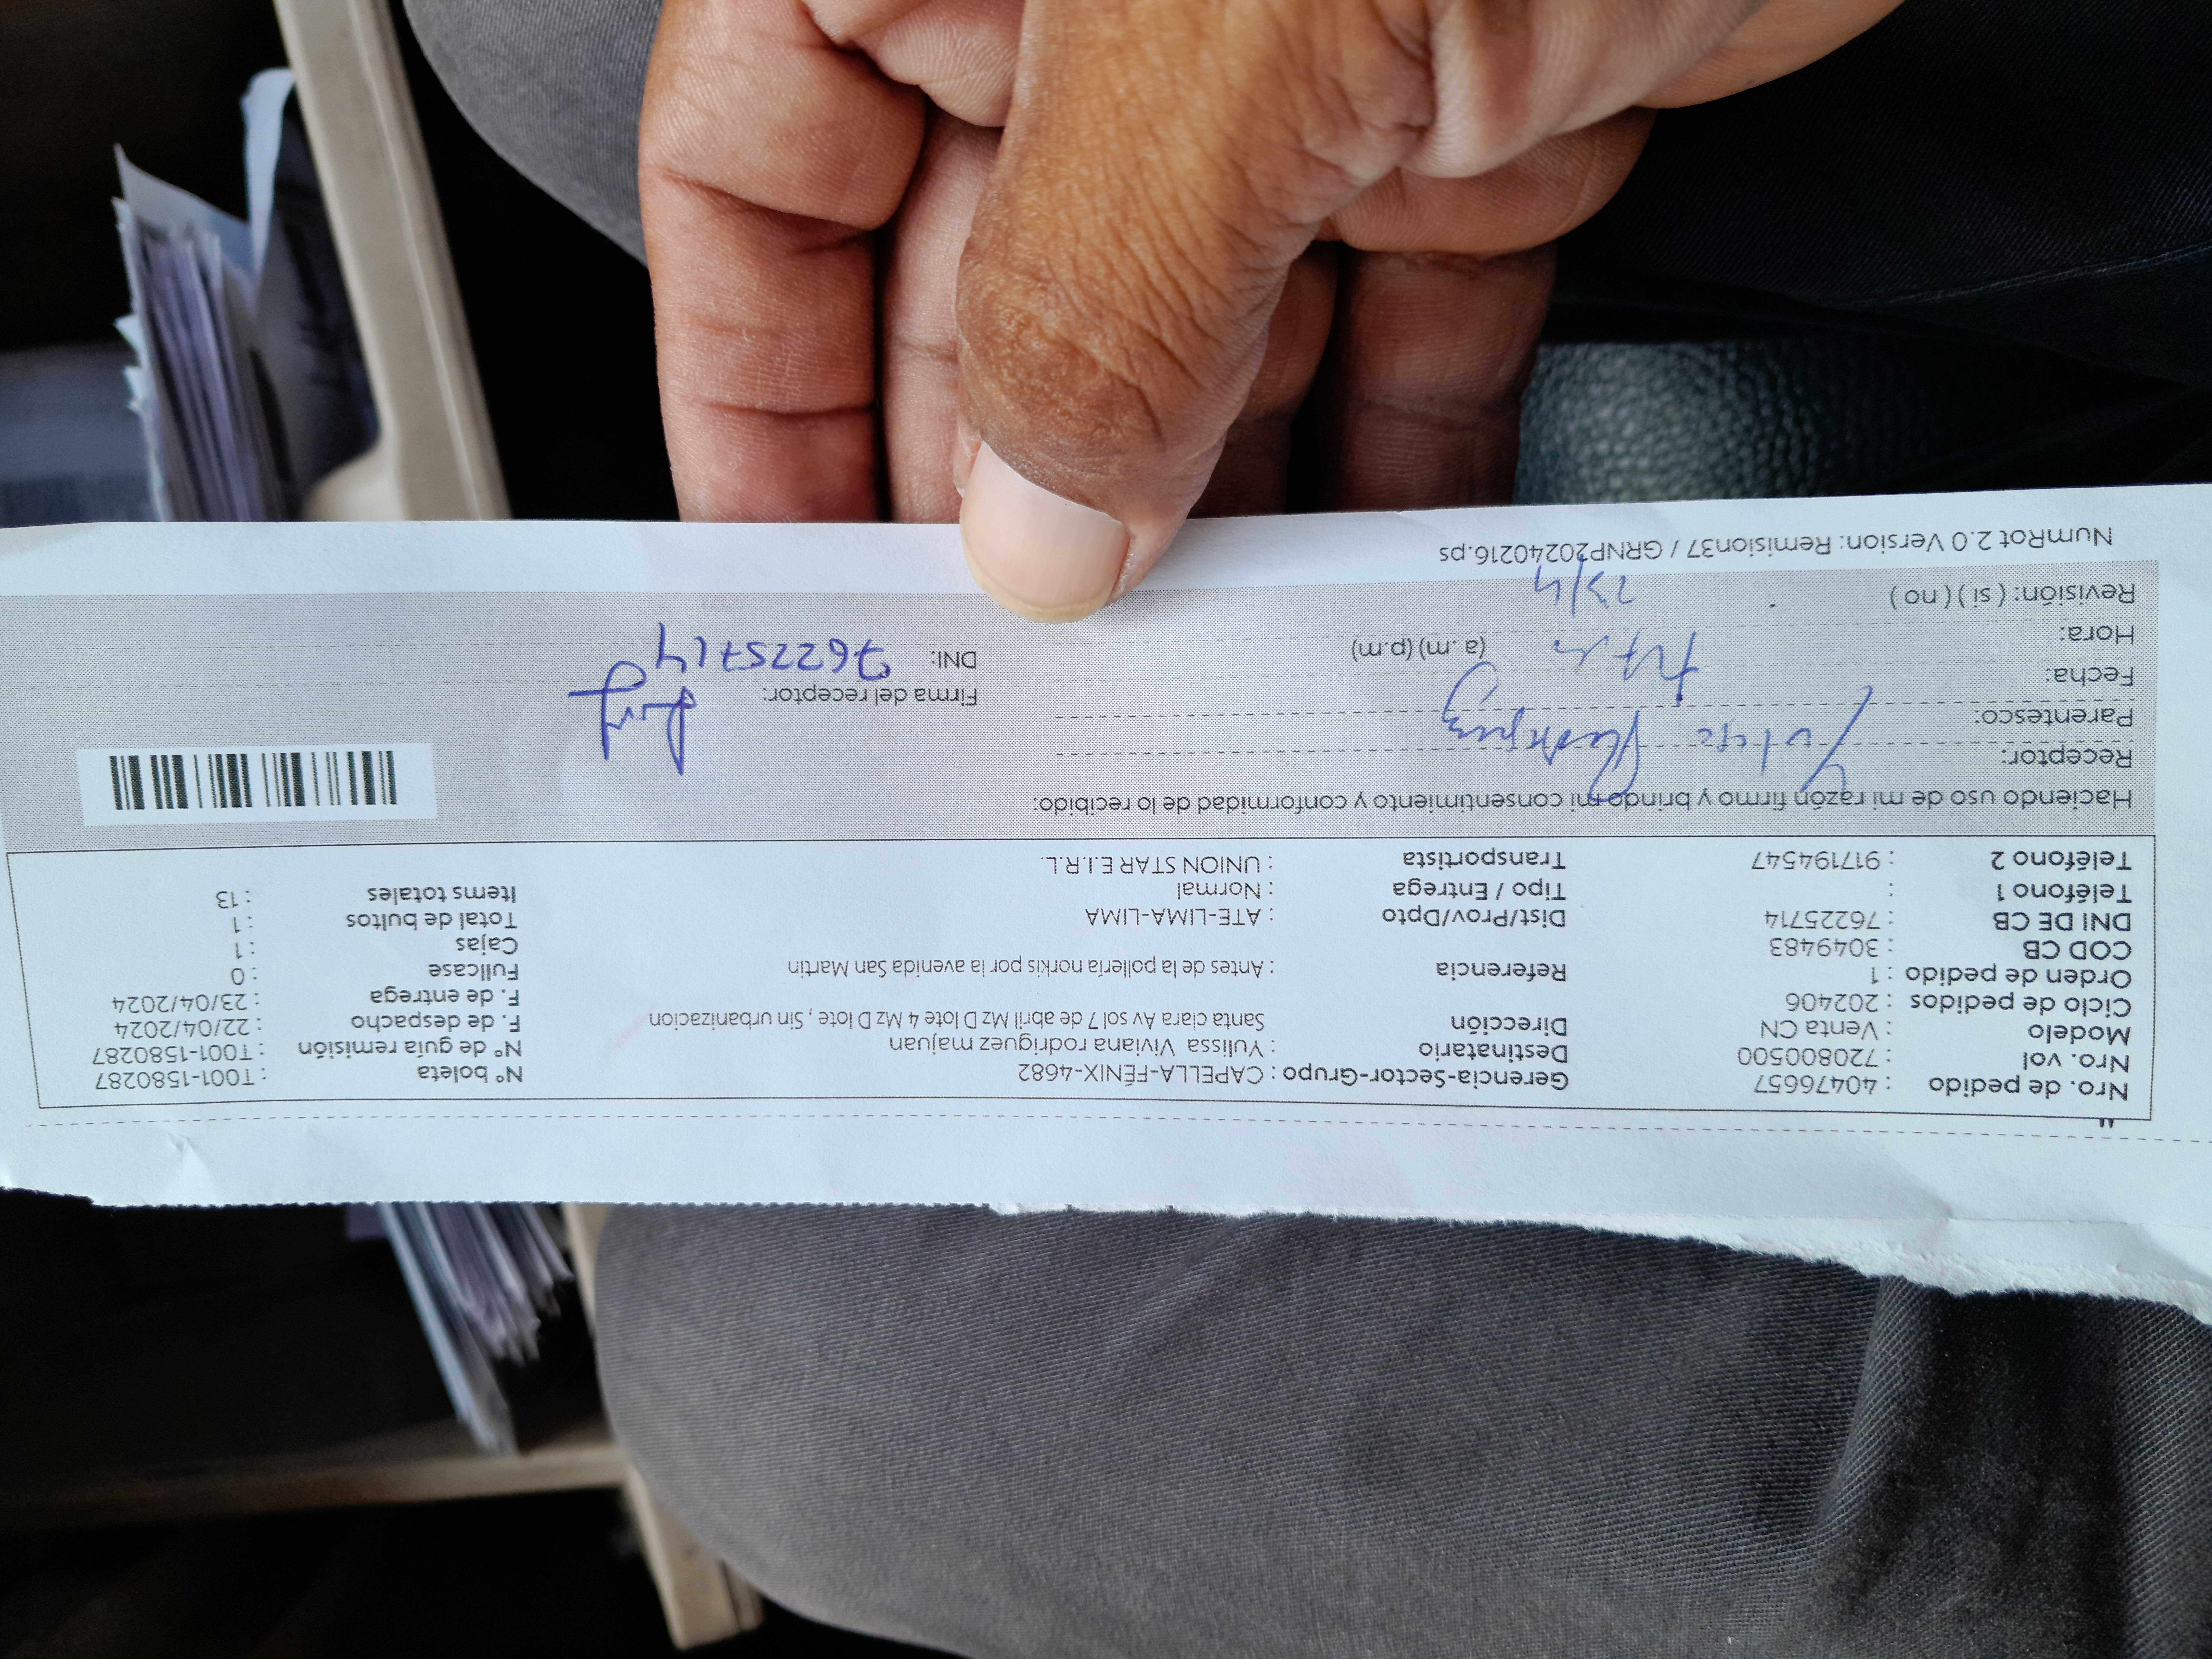 Nro. de pedido : 40476657 Gerencia-Sector-Grupo : CAPELLA-FÉNIX-4682 N° boleta : T001-1580287
Nro. vol : 720800500 Destinatario : Yulissa Viviana rodriguez majuan N° de guía remisión : T001-1580287
Modelo : Venta CN Dirección Santa clara Av sol 7 de abril Mz D lote 4 Mz D lote , Sin urbanizacion F. de despacho : 22/04/2024
Ciclo de pedidos : 202406 F. de entrega : 23/04/2024
Orden de pedido : 1 Referencia : Antes de la pollería norkis por la avenida San Martin Fullcase : 0
COD CB : 3049483 Cajas : 1
DNI DE CB : 76225714 Dist/Prov/Dpto : ATE-LIMA-LIMA Total de bultos : 1
Teléfono 1 : Tipo / Entrega : Normal Items totales : 13
Teléfono 2 : 917194547 Transportista : UNION STAR E.I.R.L.
Haciendo uso de mi razón firmo y brindo mi consentimiento y conformidad de lo recibido:
Receptor:
Parentesco:
Fecha: Firma del receptor:
Hora: (a. m) (p.m) DNI: 76225714
Revisión: ( si ) ( no ) 23/4
NumRot 2.0 Version: Remision37 / GRNP20240216.ps